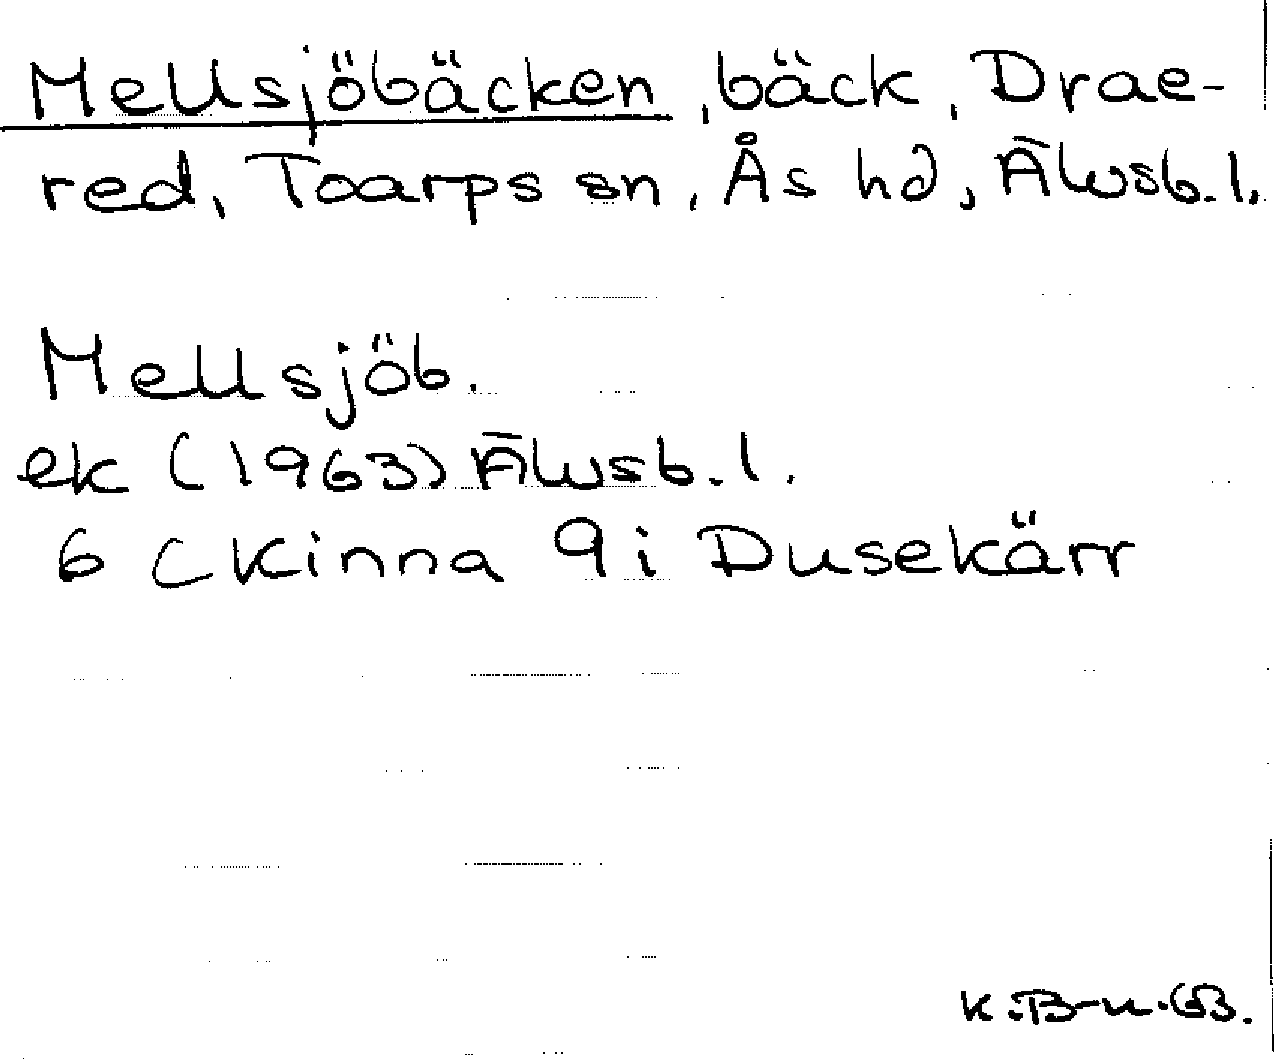 Mellsjöbäcken, bäck, Drae-
red, Toarps sn, Ås hd, Älvsb. l.
Mellsjöb.
ek (1963) Älvsb. l.
6 C Kinna 9 i Dusekärr